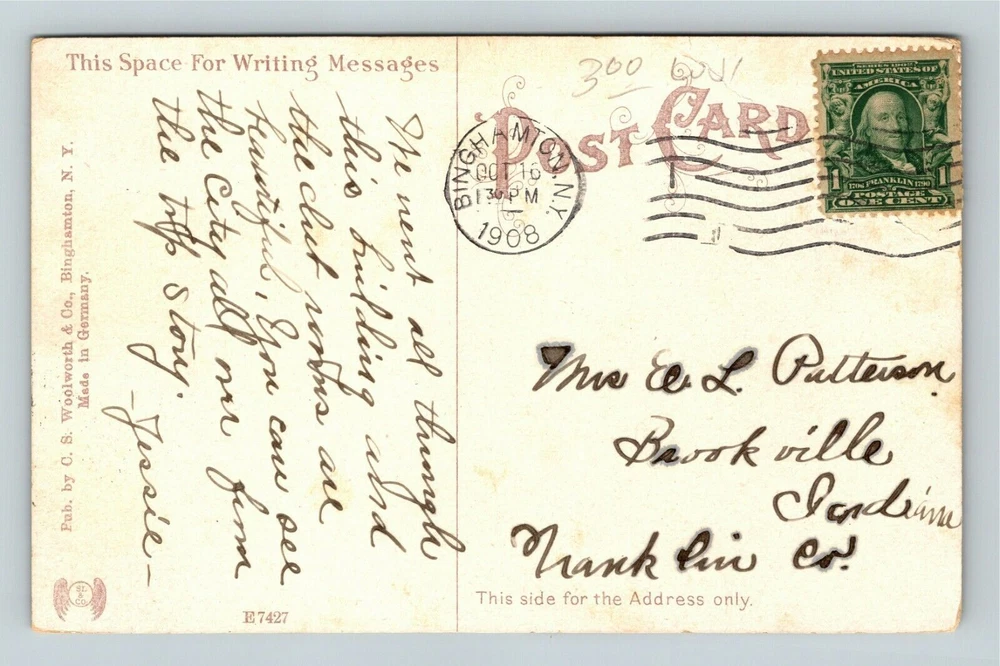 This Space For Writing Messages
We went all through
this building and
the club rooms are
beautiful, & you can see
the City all over from
the top story.
– Jessie –
Pub. by C. S. Woolworth & Co., Binghamton, N. Y.
Made in Germany.
E 7427
300
POST CARD
BINGHAMTON, N.Y.
OCT 16
130 PM
1908
SERIES 1902
UNITED STATES OF
AMERICA
1
1706 FRANKLIN 1790
POSTAGE
ONE CENT
Mrs A. L. Patterson
Brookville
Indiana
Franklin Co.
This side for the Address only.